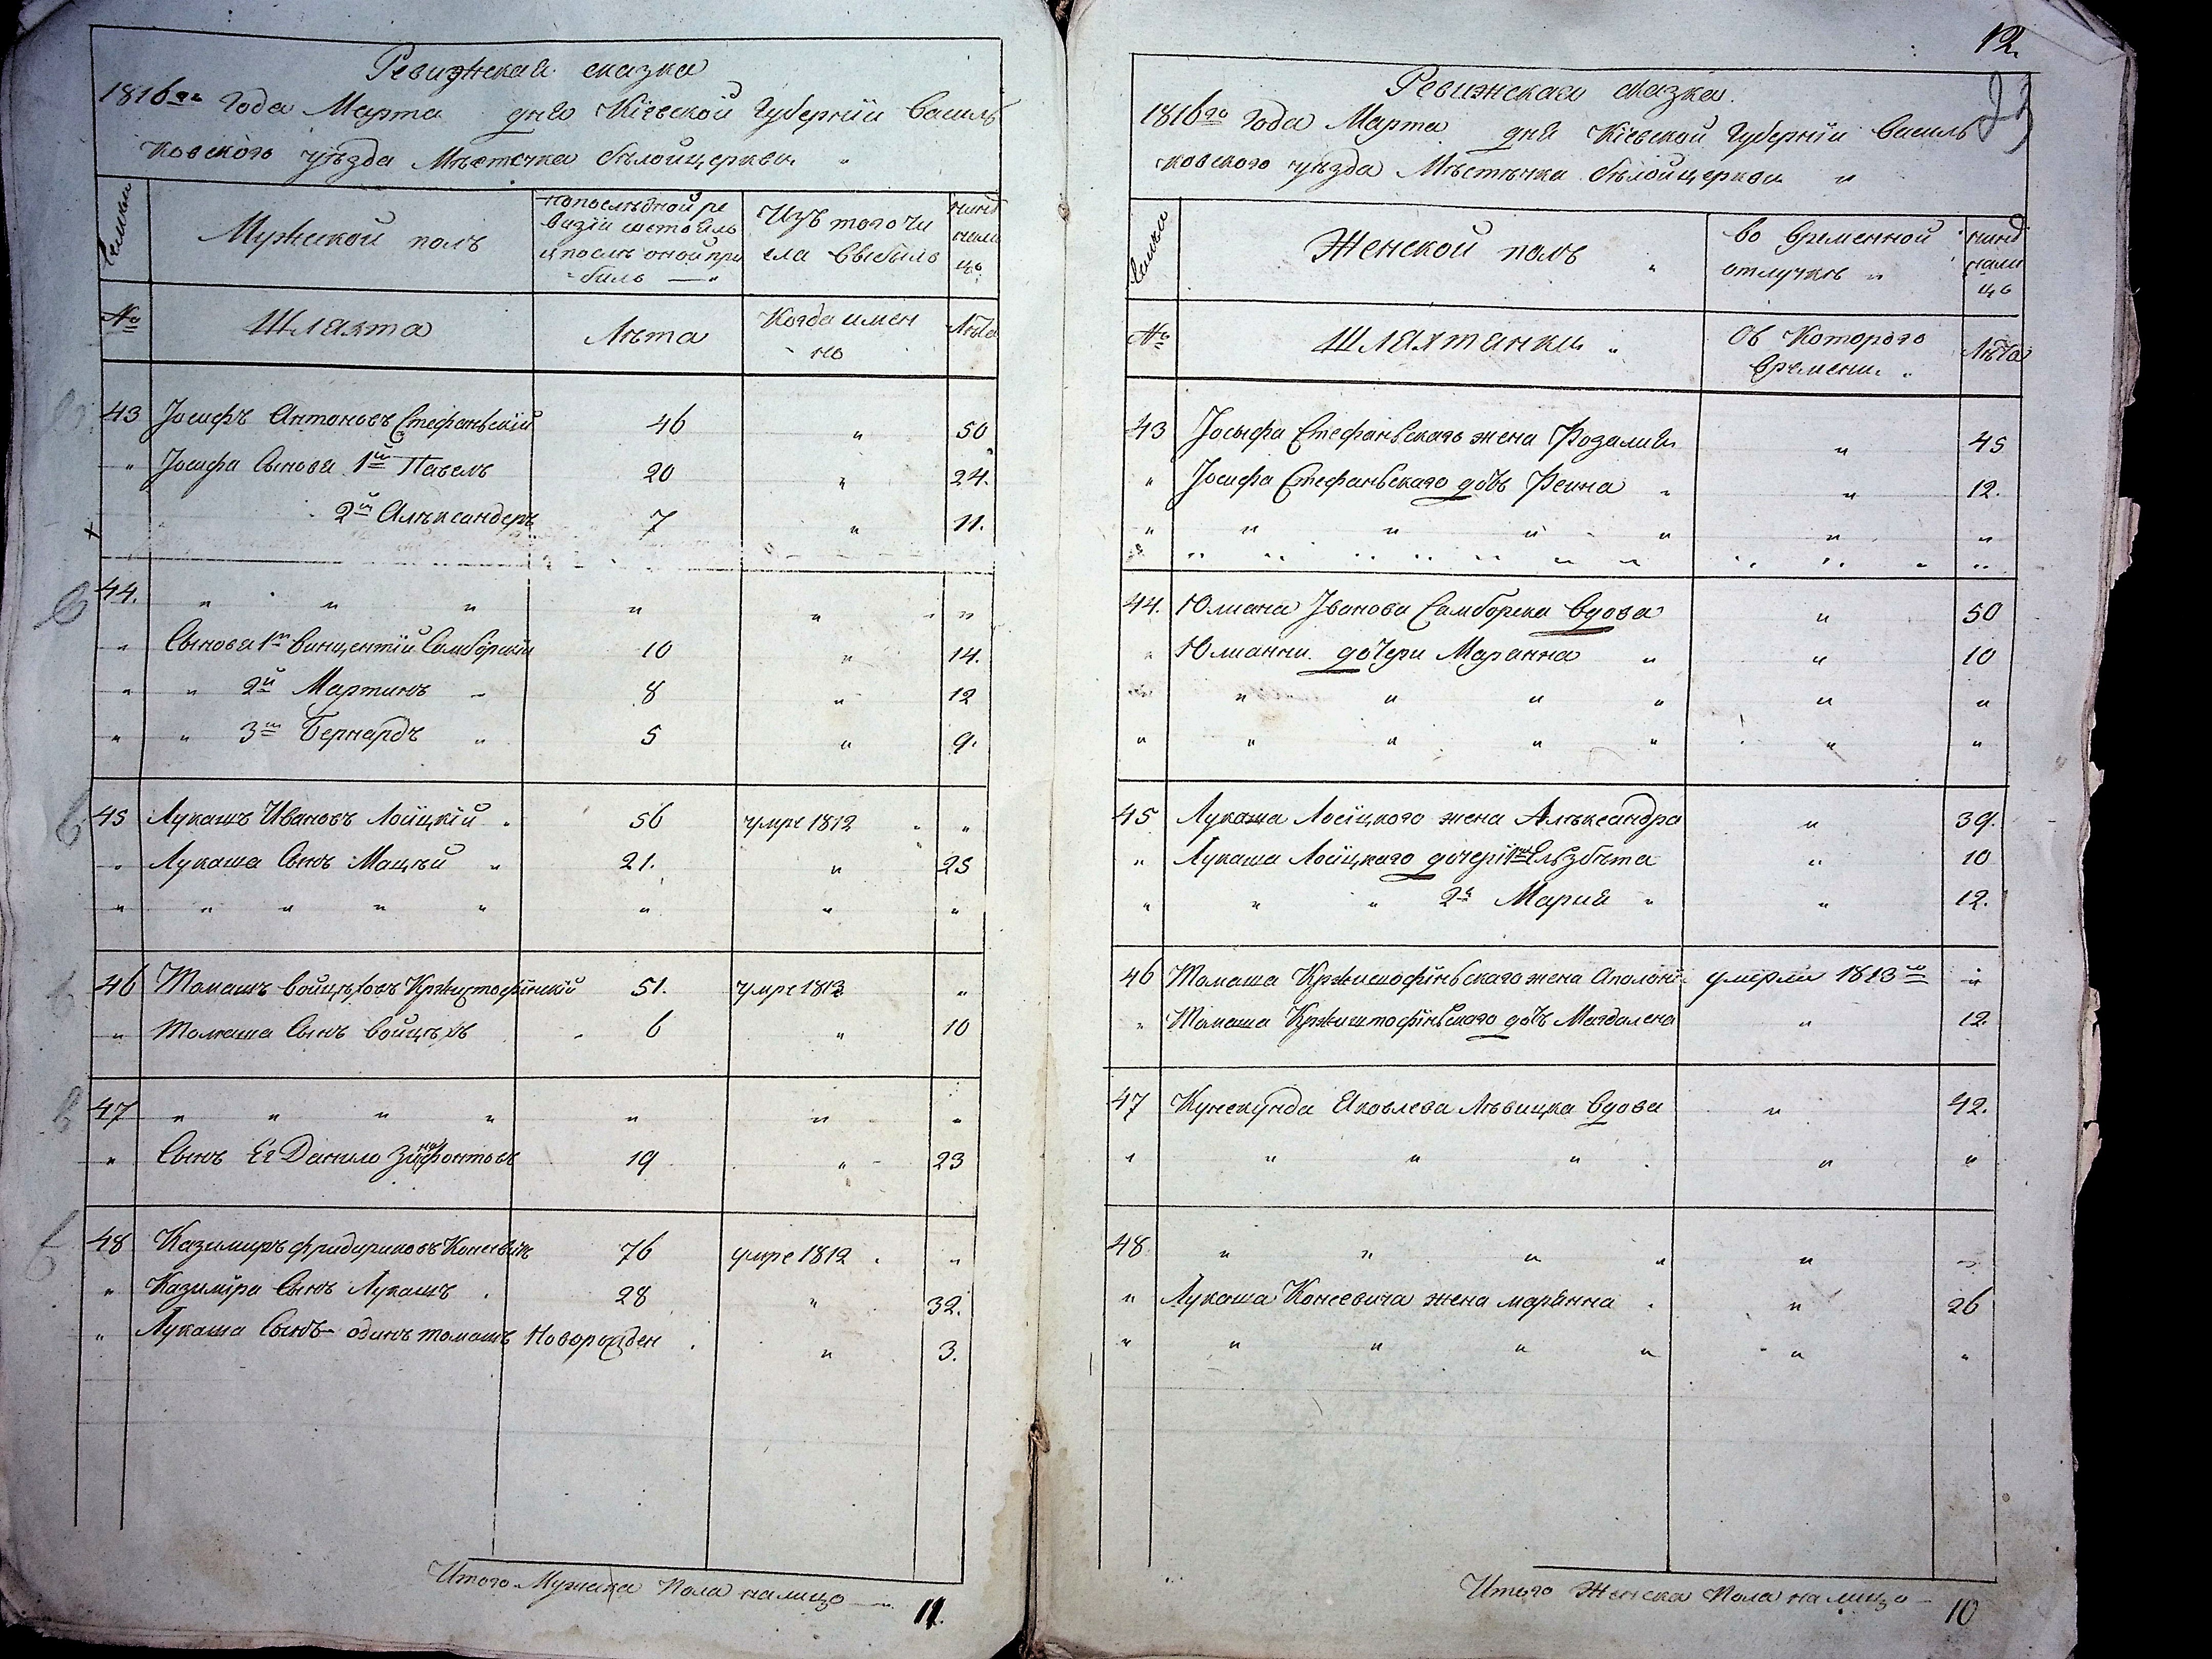 Ревижская сказка
1816го Года Марта дня Кіевской Губерніи Василь
ковского уѣзда Мѣстечка бѣлойцеркви "
Семьи
Мужеской полъ
напослѣдной ре
визіи состояль
ипослѣ оной при
былъ — "
Изъ того чи
сла выбыло
нинѣ
нали
цо
№
Шляхта
Лѣта
Когда имен
но
Лѣта
43 Іосифъ Антоновъ Стефаньскій 46 " 50
" Іосифа Сынова 1й Павелъ 20 " 24.
2й Алѣксандеръ 7 " 11.
44. " " " " " "
" Сынова 1й Винцентій Самборскій 10 " 14.
" " 2й Мартинъ 8 " 12
" " 3й Бернардъ " 5 " 9.
45 Лукашъ Ивановъ Лоіцкій " 56 умре 1812 " "
" Лукаша Сынъ Мацѣй " 21. " 25
" " " " " " " "
46 Томашъ Войцѣховъ Кржиштофінскій 51. умре 1813 "
" Томаша Сынъ Войцѣхъ 6 " 10
47 " " " " " " "
" Сынъ Еѣ Данило 19 " 23
48 Казимиръ Фридириковъ Консевичъ 76 умре 1812 . "
" Казиміра Сынъ Лукашъ . 28 " 32.
" Лукаша Сынъ одинъ томашъ Новорожден . " 3.
Итого Мужска Пола налицо — 11.
12.
Ревижская сказка.
1816го Года Марта дня Кіевской Губерніи Василь
ковского уѣзда Мѣстѣчка бѣлойцеркви "
Семьи
Женской полъ "
во временной
отлучкѣ "
нинѣ
нали
цо
№
Шляхтянки "
Об Которого
Времени. "
Лѣта
43 Іосыфа Стефаньскаго жена Розалия " 45
" Іосифа Стефаньскаго дочь Реина " " 12.
" " " " " " "
" " " " " " " " " " " "
44. Юлиана Іванова Самборска Вдова " 50
" Юлианни дочери Марянна " " 10
" " " " " " "
" " " " " " "
45 Лукаша Лоіцкого жена Алѣксандра " 39.
" Лукаша Лоіцкаго дочері 1я Ельзбѣта " 10
" " " 2я Мария " " 12.
46 Томаша Кржистофіньскаго жена Аполоні умерла 1813го "
" Томаша Кржиштофіньскаго дочь Магдалена " 12.
47 Кунекунда Яковлева Лѣвицка Вдова " 42.
" " " " . " "
48 " " " " " "
" Лукаша Консевича жена марянна . " 26
" " " " " " "
Итого Женска Пола налицо — 10